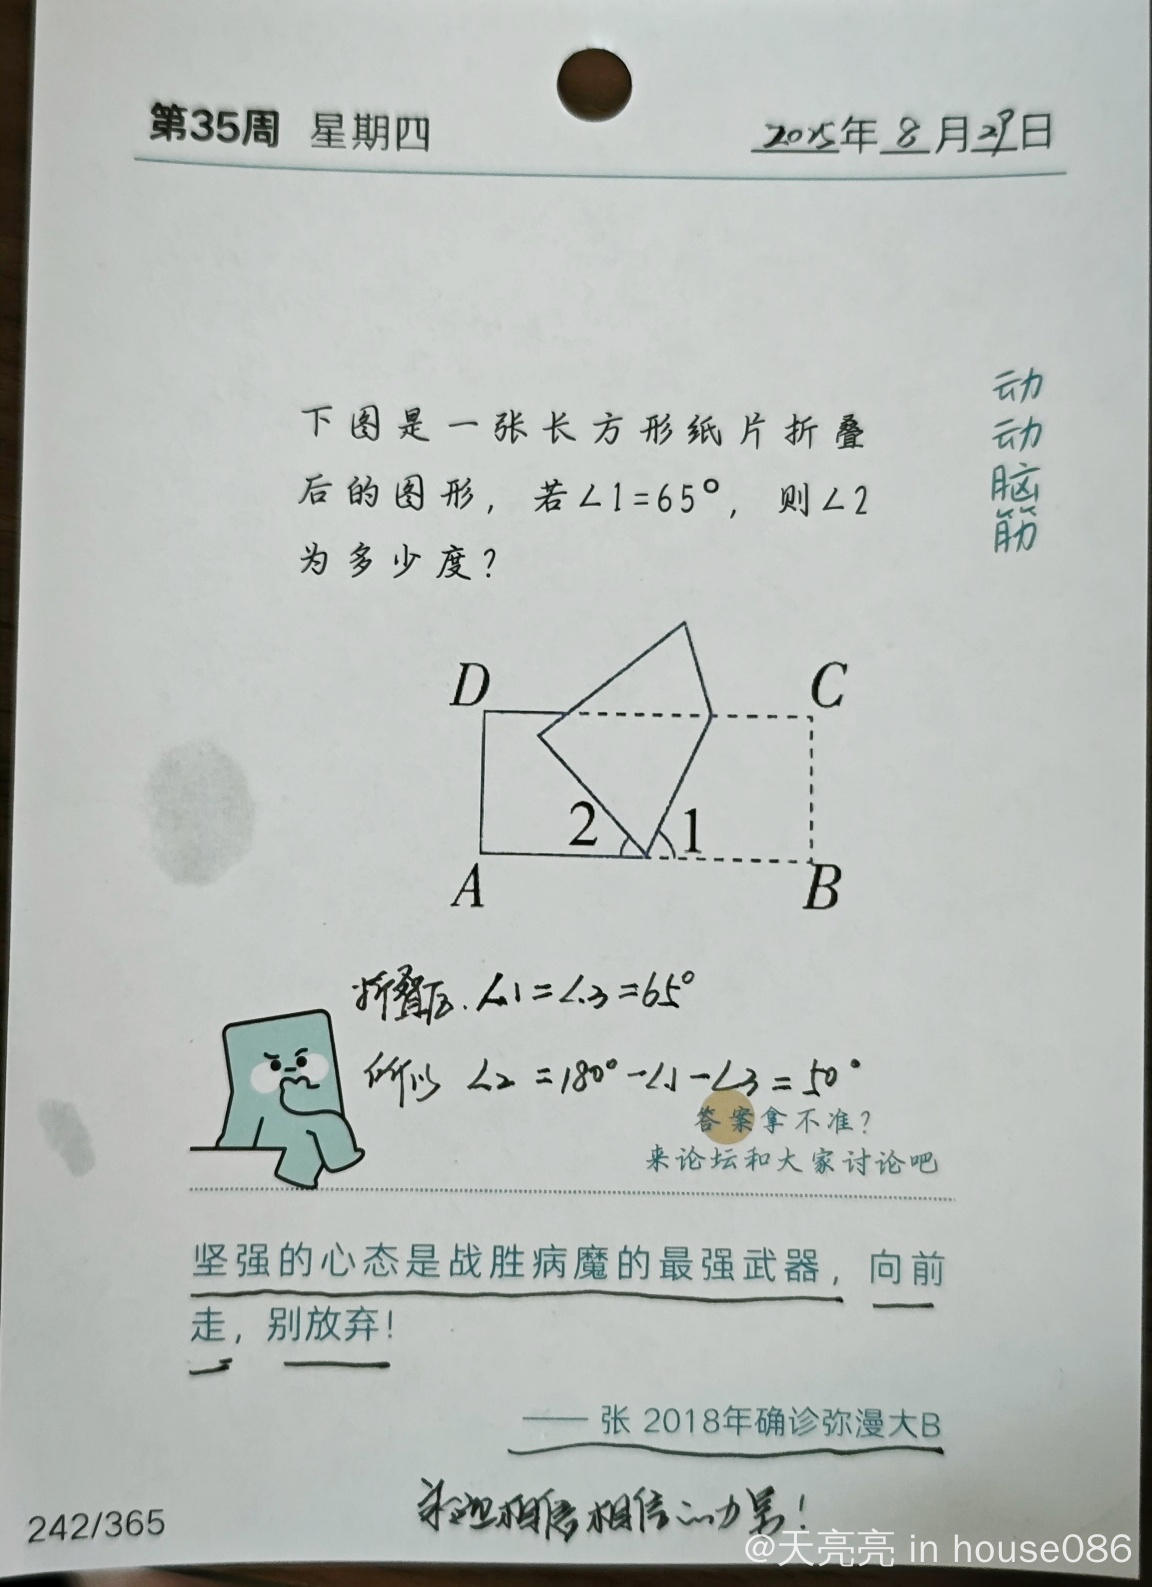 第35周 星期四 2025年8月29日
动动脑筋
下图是一张长方形纸片折叠
后的图形，若∠1=65°，则∠2
为多少度？
D C
2 1
A B
折叠后.∠1=∠3=65°
所以 ∠2=180°-∠1-∠3=50°
答案拿不准？
来论坛和大家讨论吧
坚强的心态是战胜病魔的最强武器，向前
走，别放弃！
—— 张 2018年确诊弥漫大B
相信相信的力量！
242/365
@天亮亮 in house086